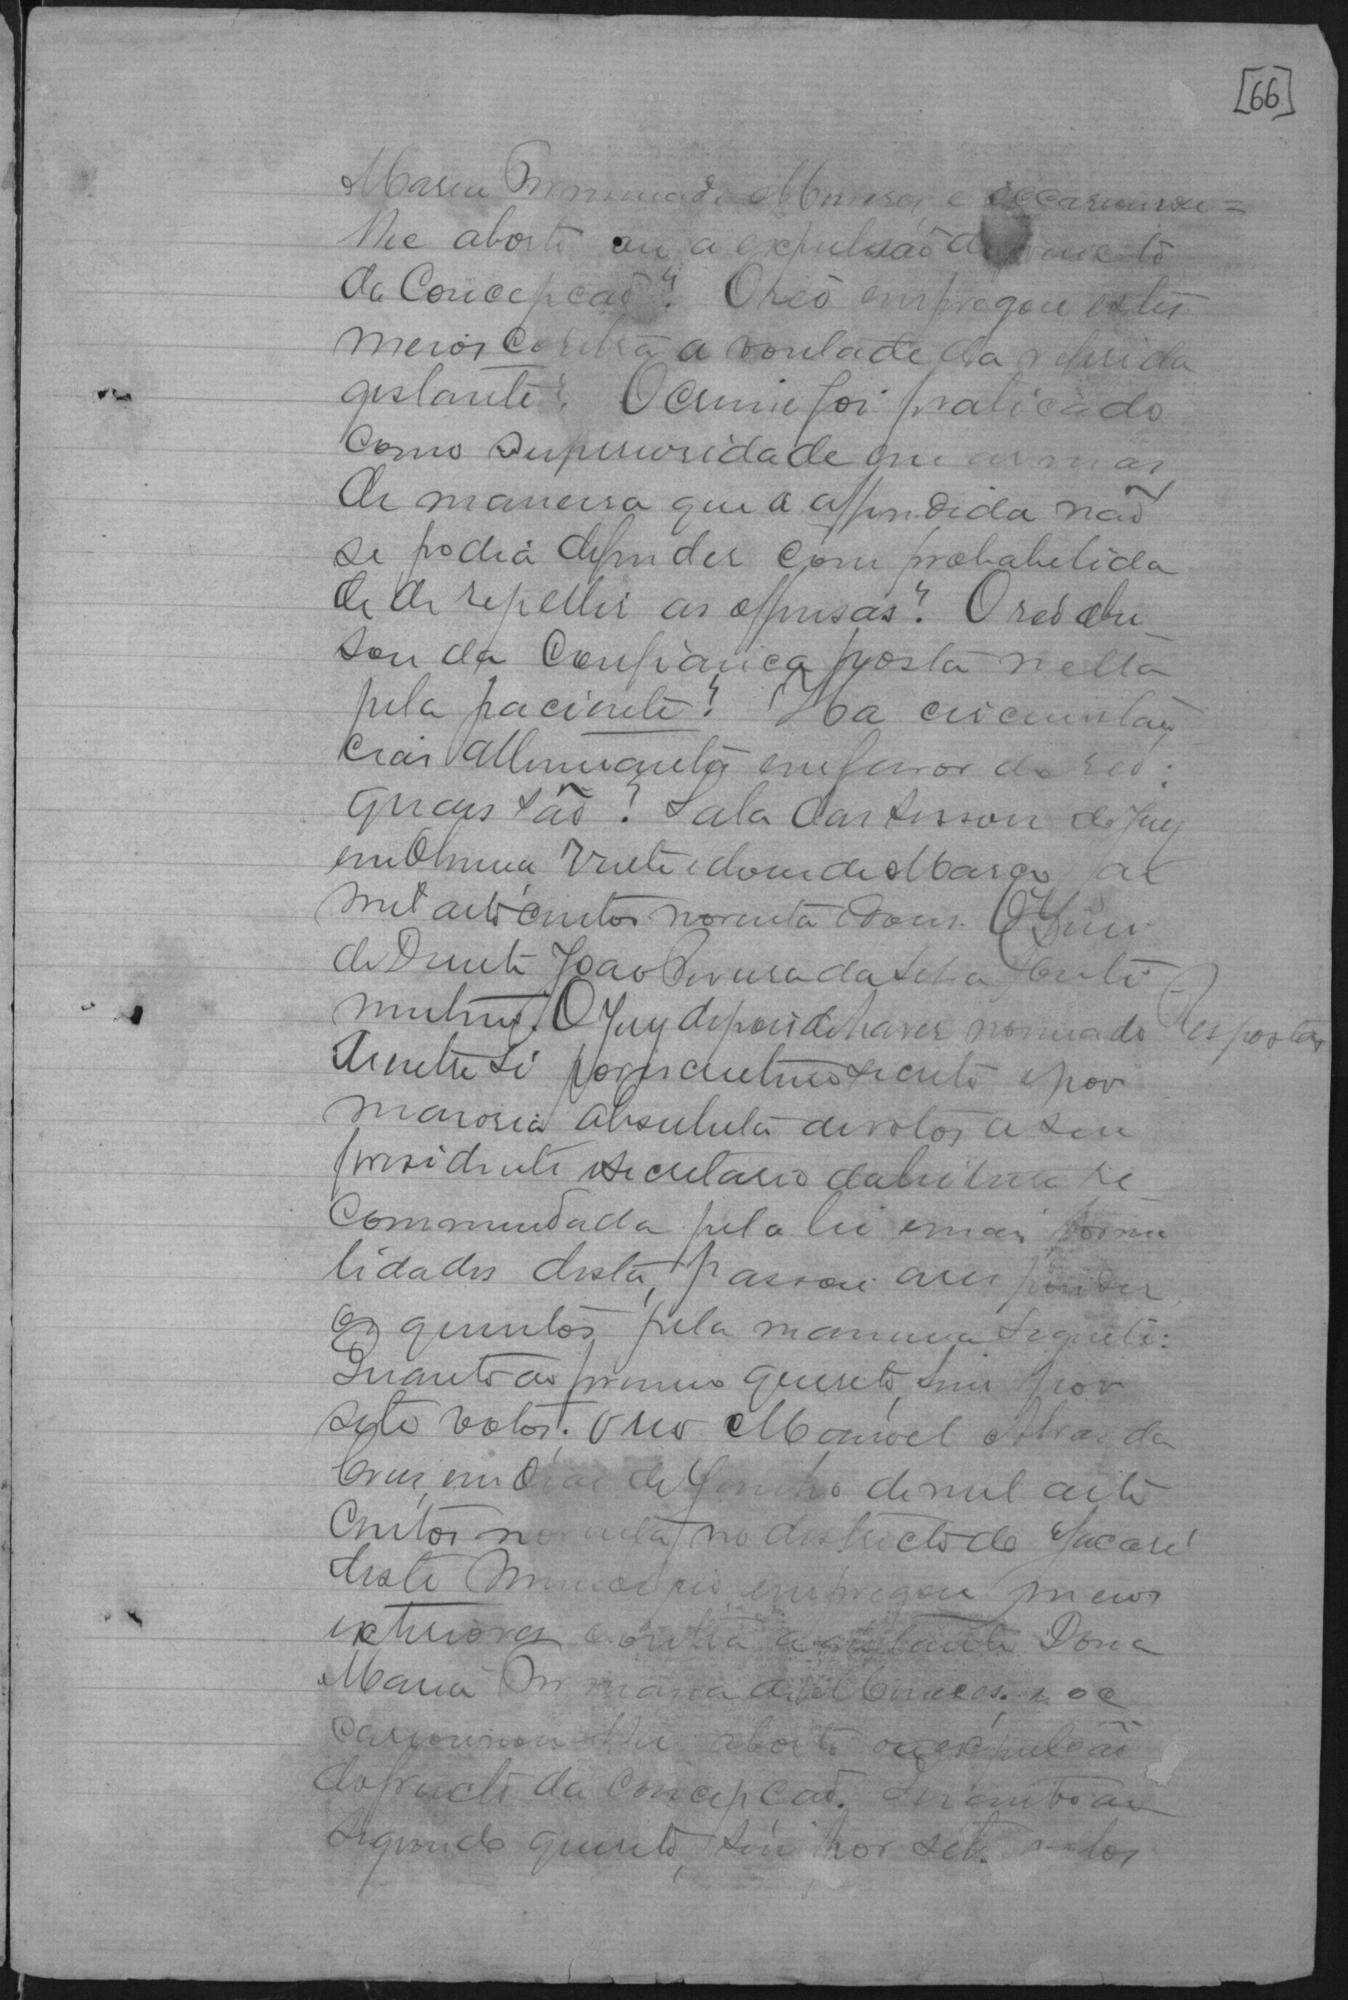 [66]
Maria Rommuada Moreira, e occasionou=
lhe aborto ou a expulsão do fructo
da Concepcaõ? O reo empregou estes
meios contra a vontade da referida
gestante? O crime foi praticado
como superioridade em armas
de maneira que a offendida não
se podia defender com probabelida
de de repellir as offensas? O reo abu
sou da Confiança posta nella
pela paciente? Ha circunstan
cias attenuantes em favor do reo:
quaes são? Sala das sessoes do Jury
em vinte e dous de Março de
mil oito centos noventa dous. O Juiz
de Direito João Pereira da Silva
O Jury depois de haver nomeado Respostas
dentre si por iscrutineo secreto e por
maioria absuluta de votos a seu
presidente e secretario da leitura re
Commendada pela lei e mais forma
lidades desta, passou a responder
os quesitos pela maneira seguinte:
Quanto ao primeiro quesito, sim por
sete votos; o reo Manoel Alves da
Cruz, em dias de Junho de mil oito
centos noventa, no districto do Jacaré
deste Municipio, empregou meios
exteriores contra a gestante Dona
Maria de Moreira, e oc
casionou-lhe aborto ou expulsão
do fructo da Concepcaõ. Quanto ao
segundo quesito, sim por sete votos